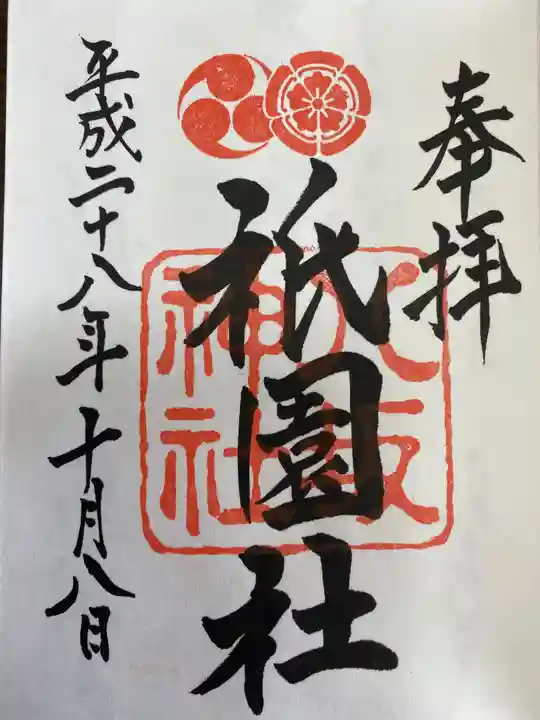 奉拝
祇園社
八坂
神社
平成二十八年十月八日